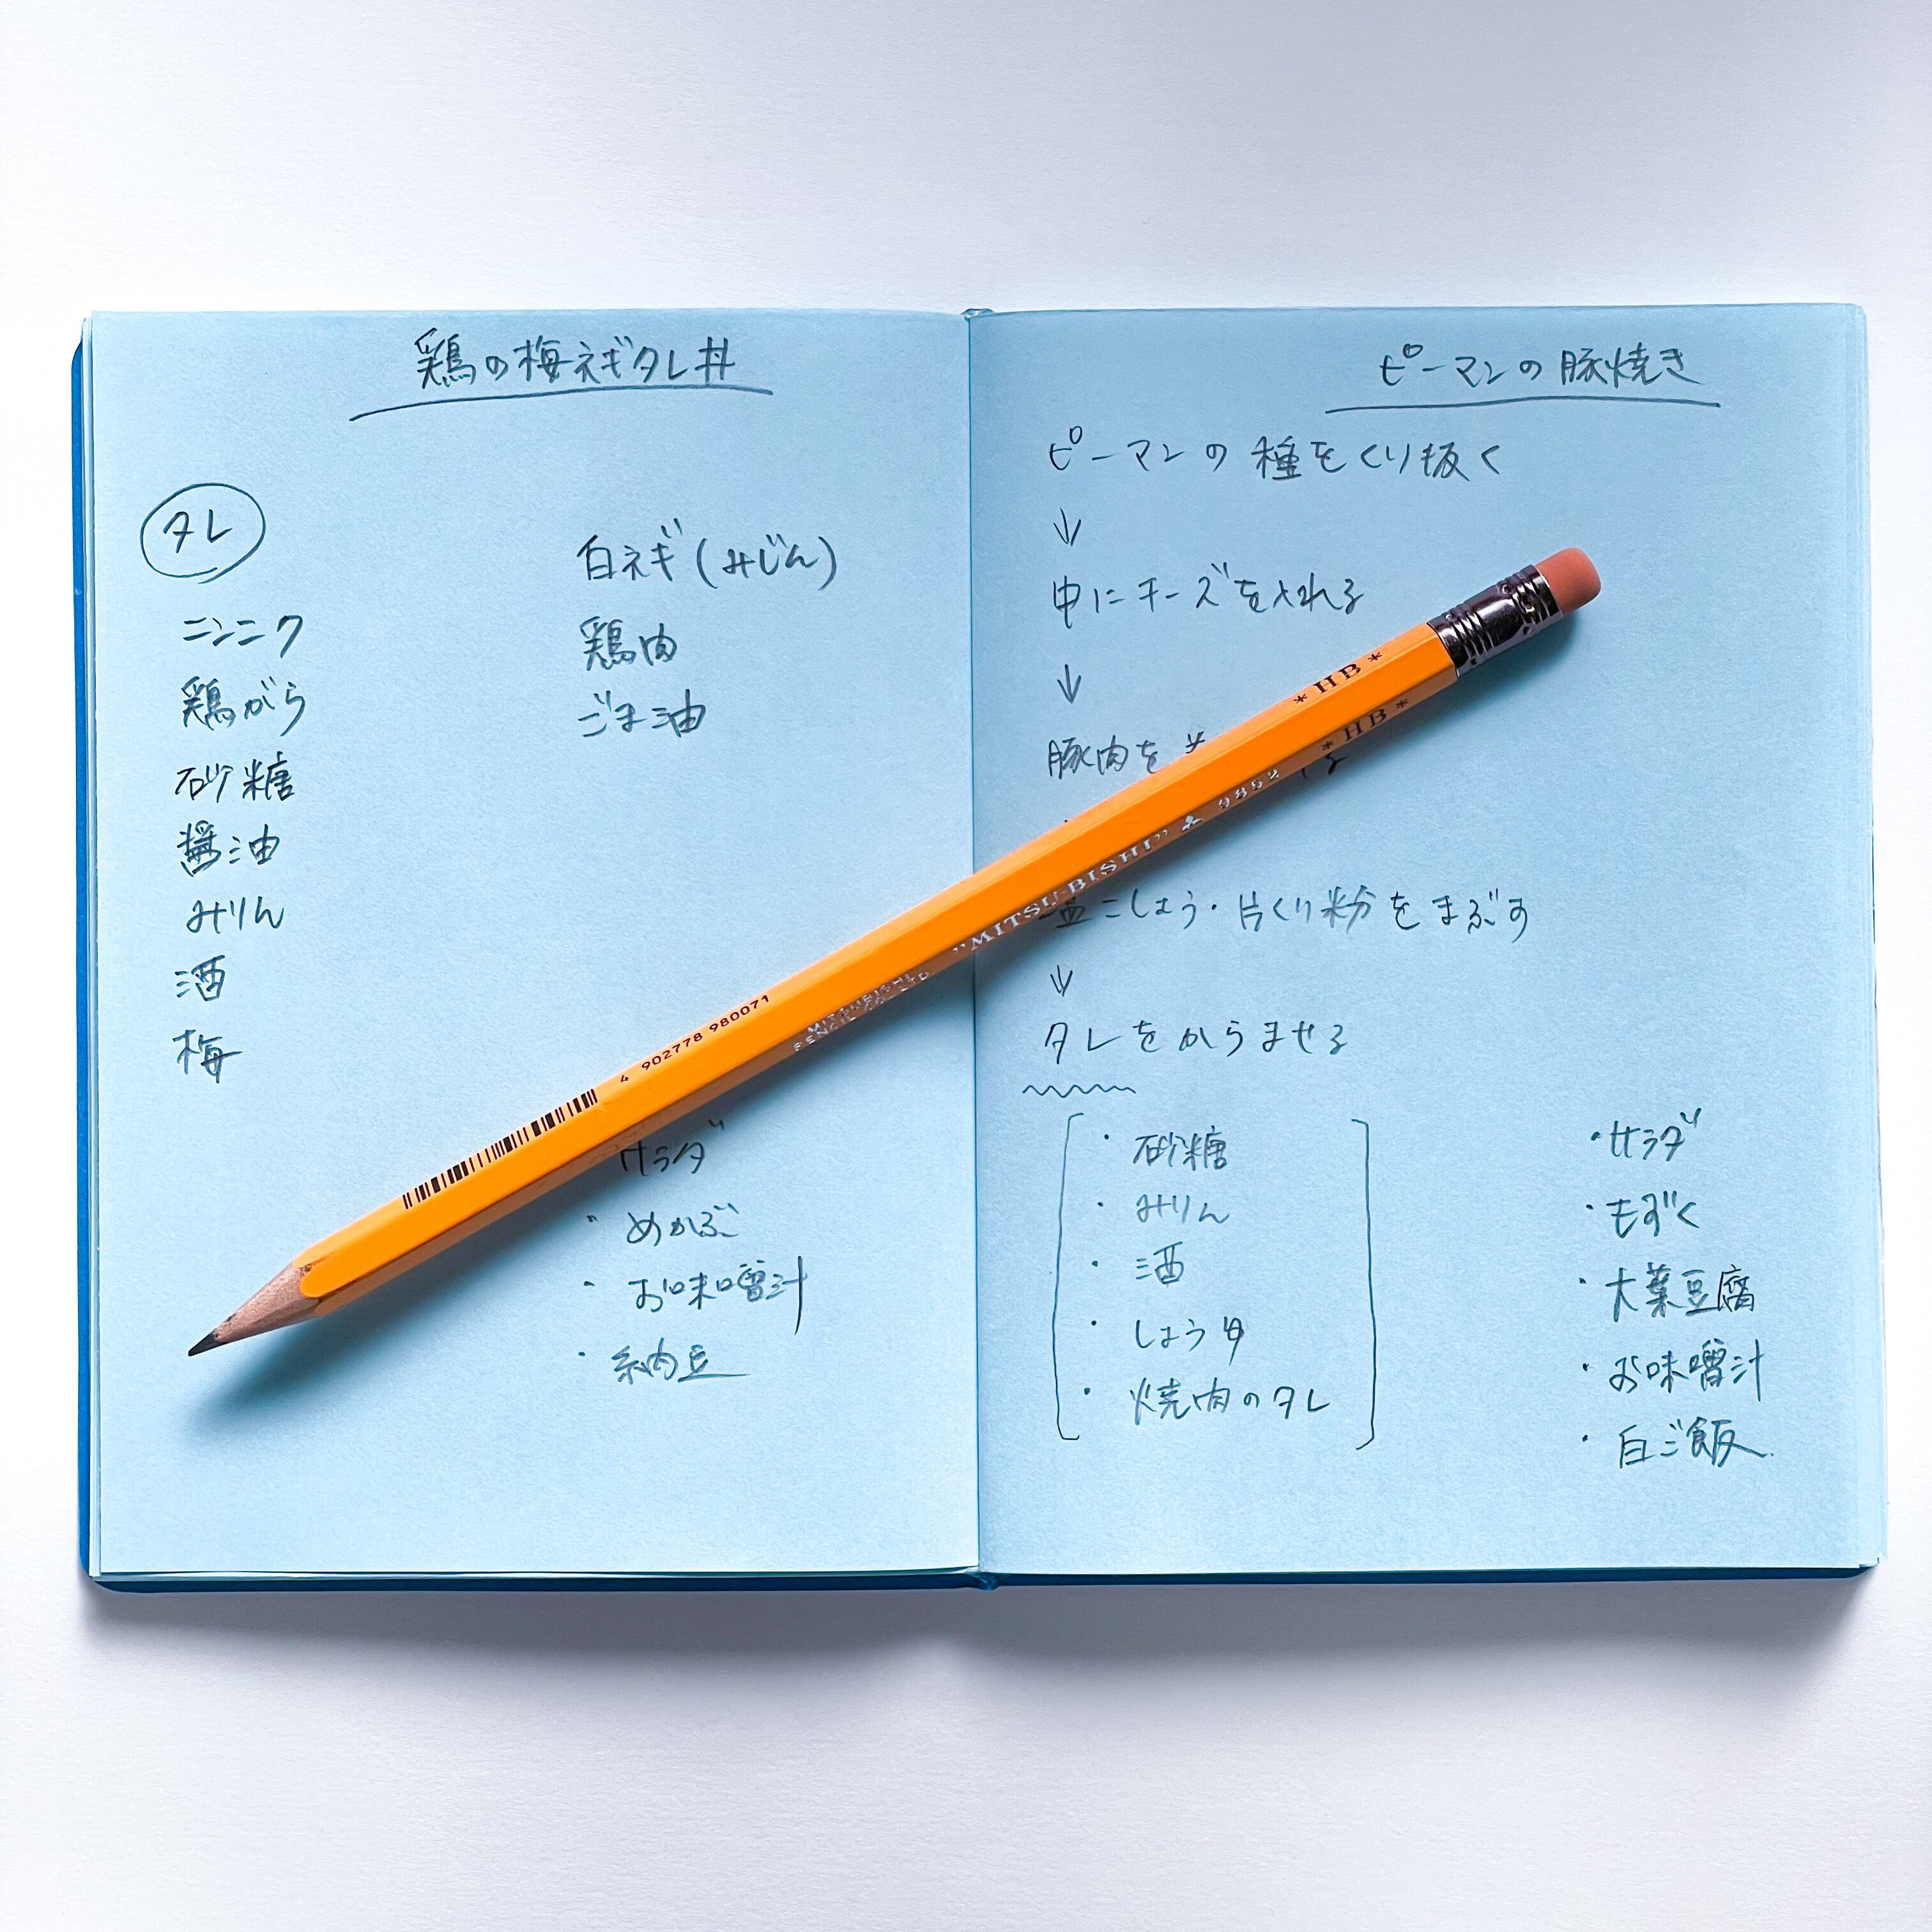 鶏の梅ネギタレ丼
タレ
ニンニク
鶏がら
砂糖
醤油
みりん
酒
梅
白ネギ(みじん)
鶏肉
ごま油
サラダ
・めかぶ
・お味噌汁
・納豆
ピーマンの豚焼き
ピーマンの種をくり抜く
↓
中にチーズを入れる
↓
豚肉を
塩こしょう・片くり粉をまぶす
↓
タレをからませる
・砂糖
・みりん
・酒
・しょうゆ
・焼肉のタレ
・サラダ
・もずく
・大葉豆腐
・お味噌汁
・白ご飯
* HB *
* HB *
"MITSU-BISHI" 9852
MITSUBISHI
PENCIL CO. LTD
4 902778 980071